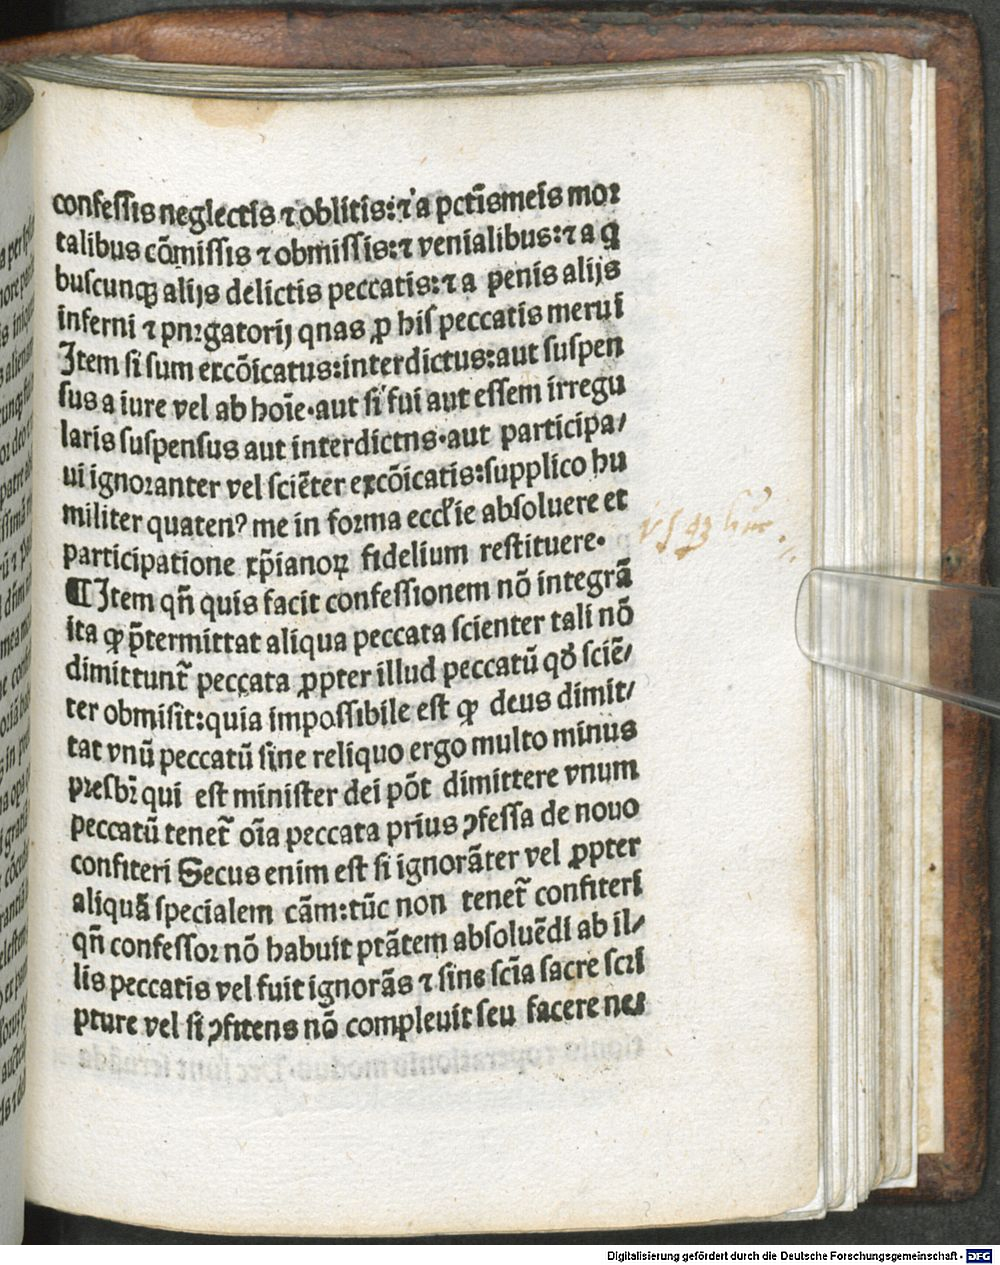 confessis neglectis ⁊ oblitis: ⁊ a pctīs meis moꝛ
talibus cōmissis ⁊ obmissis: ⁊ venialibus: ⁊ a q̄
buscunqꝫ alijs delictis peccatis: ⁊ a penis alijs
inferni ⁊ pnꝛgatorij qnas ꝓ his peccatis merui
Item si sum excōicatus: interdictus: aut suspen
sus a iure vel ab hoīe. aut si fui aut essem irregu
laris suspensus aut interdictns. aut participa/
ui ignoꝛanter vel sciēter excōicatis: supplico hu
militer quaten? me in foꝛma eccl'ie absoluere et
participatione xp̄ianoꝝ fidelium restituere.
¶ Item qn̄ quis facit confessionem nō integrā
ita ꝙ p̄termittat aliqua peccata scienter tali nō
dimittunt̄ peccata ꝓpter illud peccatū qđ sciē/
ter obmisit: quia impossibile est ꝙ deus dimit/
tat vnū peccatū sine reliquo ergo multo minus
pꝛesbꝛ̄ qui est minister dei pōt dimittere vnum
peccatū tenet̄ oīa peccata prius ꝯfessa de nouo
confiteri Secus enim est si ignorāter vel ꝓpter
aliquā specialem cām: tūc non tenet̄ confiteri
qn̄ confessoꝛ nō habuit ptātem absoluēdi ab il/
lis peccatis vel fuit ignorās ⁊ sine scīa sacre scri
pture vel si ꝯfitens nō compleuit seu facere nes
Digitalisierung gefördert durch die Deutsche Forschungsgemeinschaft - DFG